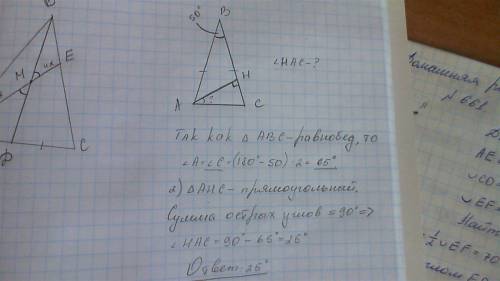 B
50°
E
M
H
∠HAC-?
A
?
C
D
C
N 661
AE
∪CO
∪EF=
Найт
1/2∪EF=70
Так как △ABC-равнобед, то
∠A=∠C=(180°-50):2=65°
2) △AHC-прямоугольный.
Сумма острых углов =90°=>
∠HAC=90°-65°=25°
Ответ: 25°